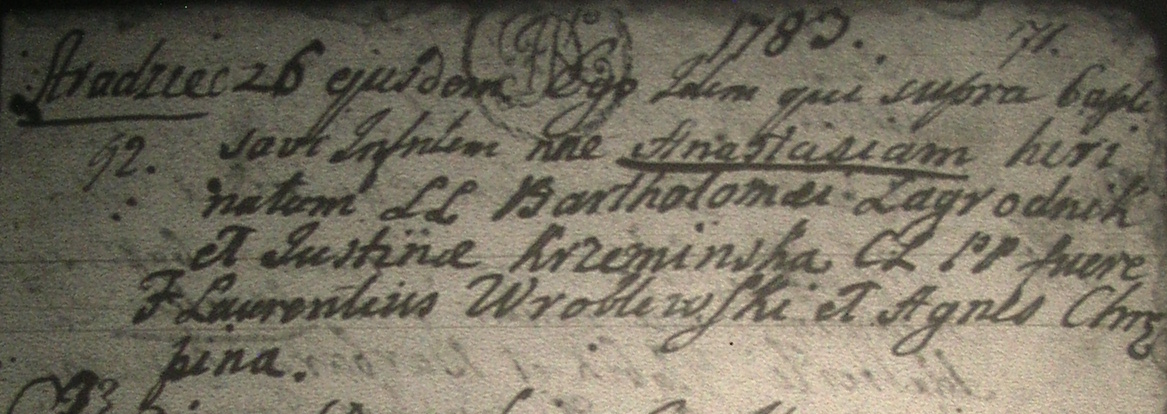 1783. 71.
Stradziec 26 ejusdem Ego Idem qui supra bapti
92. savi Infntem nne Anastasiam heri
natam LL Bartholomæi Zagrodnik
et Justinæ Krzeminska CL PP fuere
F Laurentius Wroblewski et Agnes
pina.
93